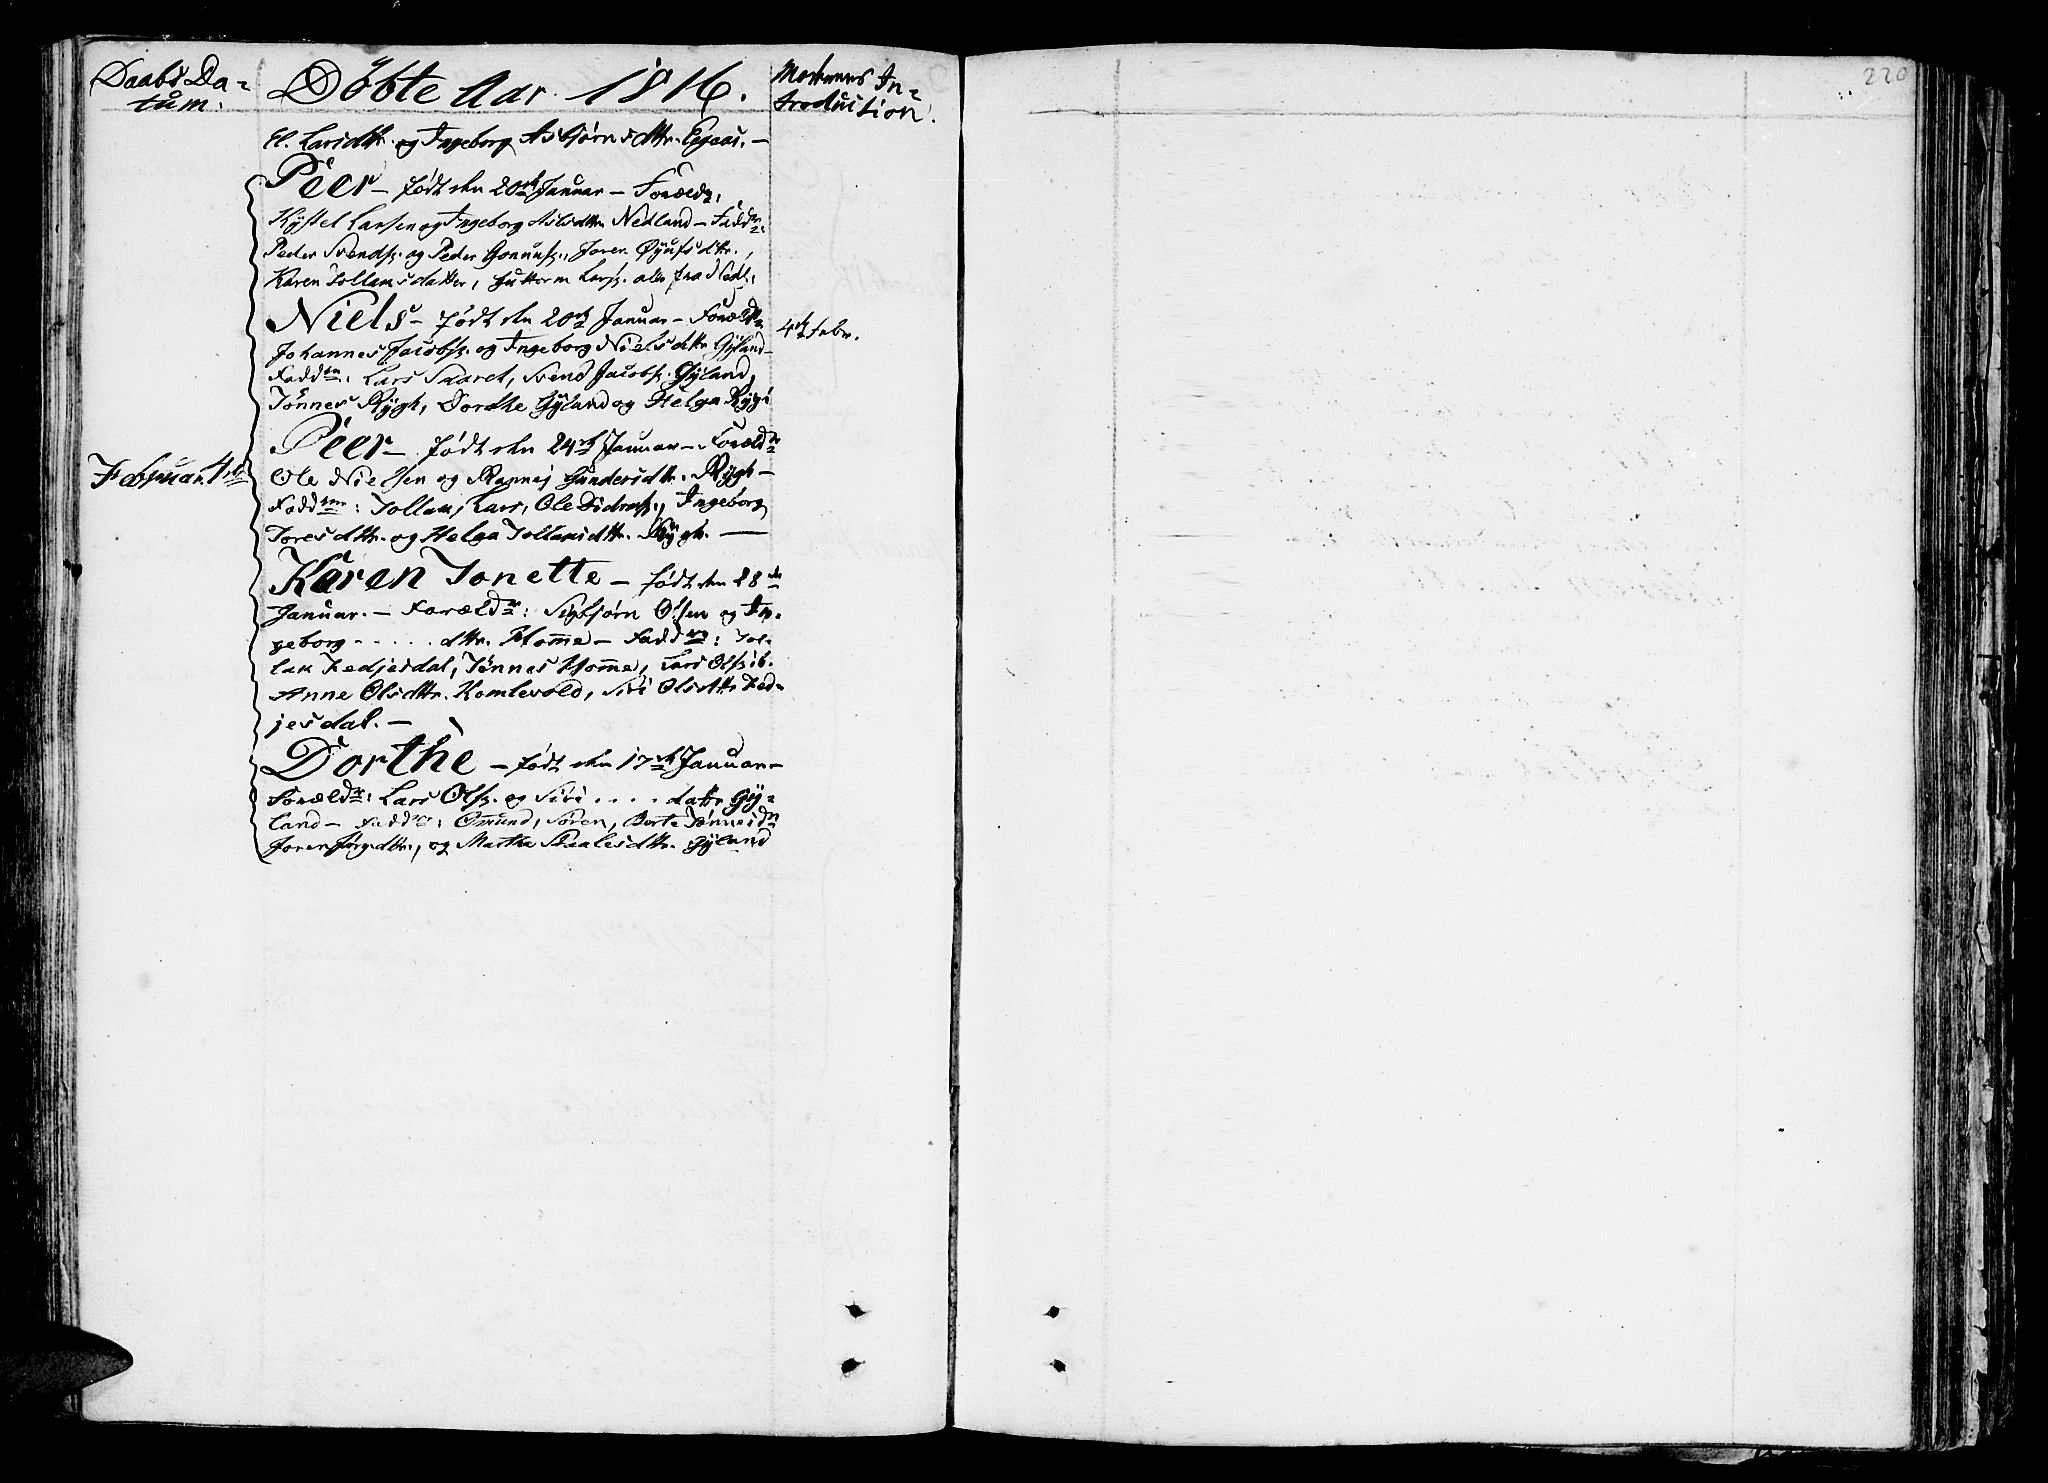 Daabs Da=
tum.
Döbte Aar 1816.
Moderens In=
troduction.
El. Larsdttr. og Ingeborg Asbjørnsdttr. Egeaas. —
Peer — født den 20de Januar — Foreldr:
Kystel Larsen og Ingeborg Aslesdttr Nedland — Faddr:
Peder Svends. og Peder Gonnufs., Joren Øyufsdttr.,
Karen Tollamsdatter, Guttorm Lars. alle fra Nedl:
Niels — født den 20de Januar — Foreldr
Johannes Jacobs. og Ingeborg Nielsdttr Gyland —
Faddrne: Lars Skaret, Svend Jacobs. Gyland,
Tönnes Rygh, Dorthe Gyland og Helga Rygh
4de Febr.
Peer — født den 24de Januar — Foreldr
Februar 4de
Ole Nielsen og Rannej Gundersdttr. Rygh —
Faddrne: Tollam, Lars, Ole Didrichs., Ingeborg
Toresdttr. og Helga Tollamsdttr. Rygh. —
Karen Tonette — født den 28de
Januar. — Foreldr: Sigbjørn Olsen og In=
geborg . . . . . dttr. Homme — Faddrne: Tol=
lak Kedjesdal, Tönnes Homme, Lars Ols. ib.
Anne Olsdttr. Homlevold, Siri Olsdttr Ked=
jesdal. —
Dorthe — født den 17de Januar —
Foreldr: Lars Ols. og Siri . . . . dattr Gy=
land — Faddr: Omund, Søren, Berte Tönnesdr
Joren Jörgdttr., og Martha Staalesdttr. Gyland
220